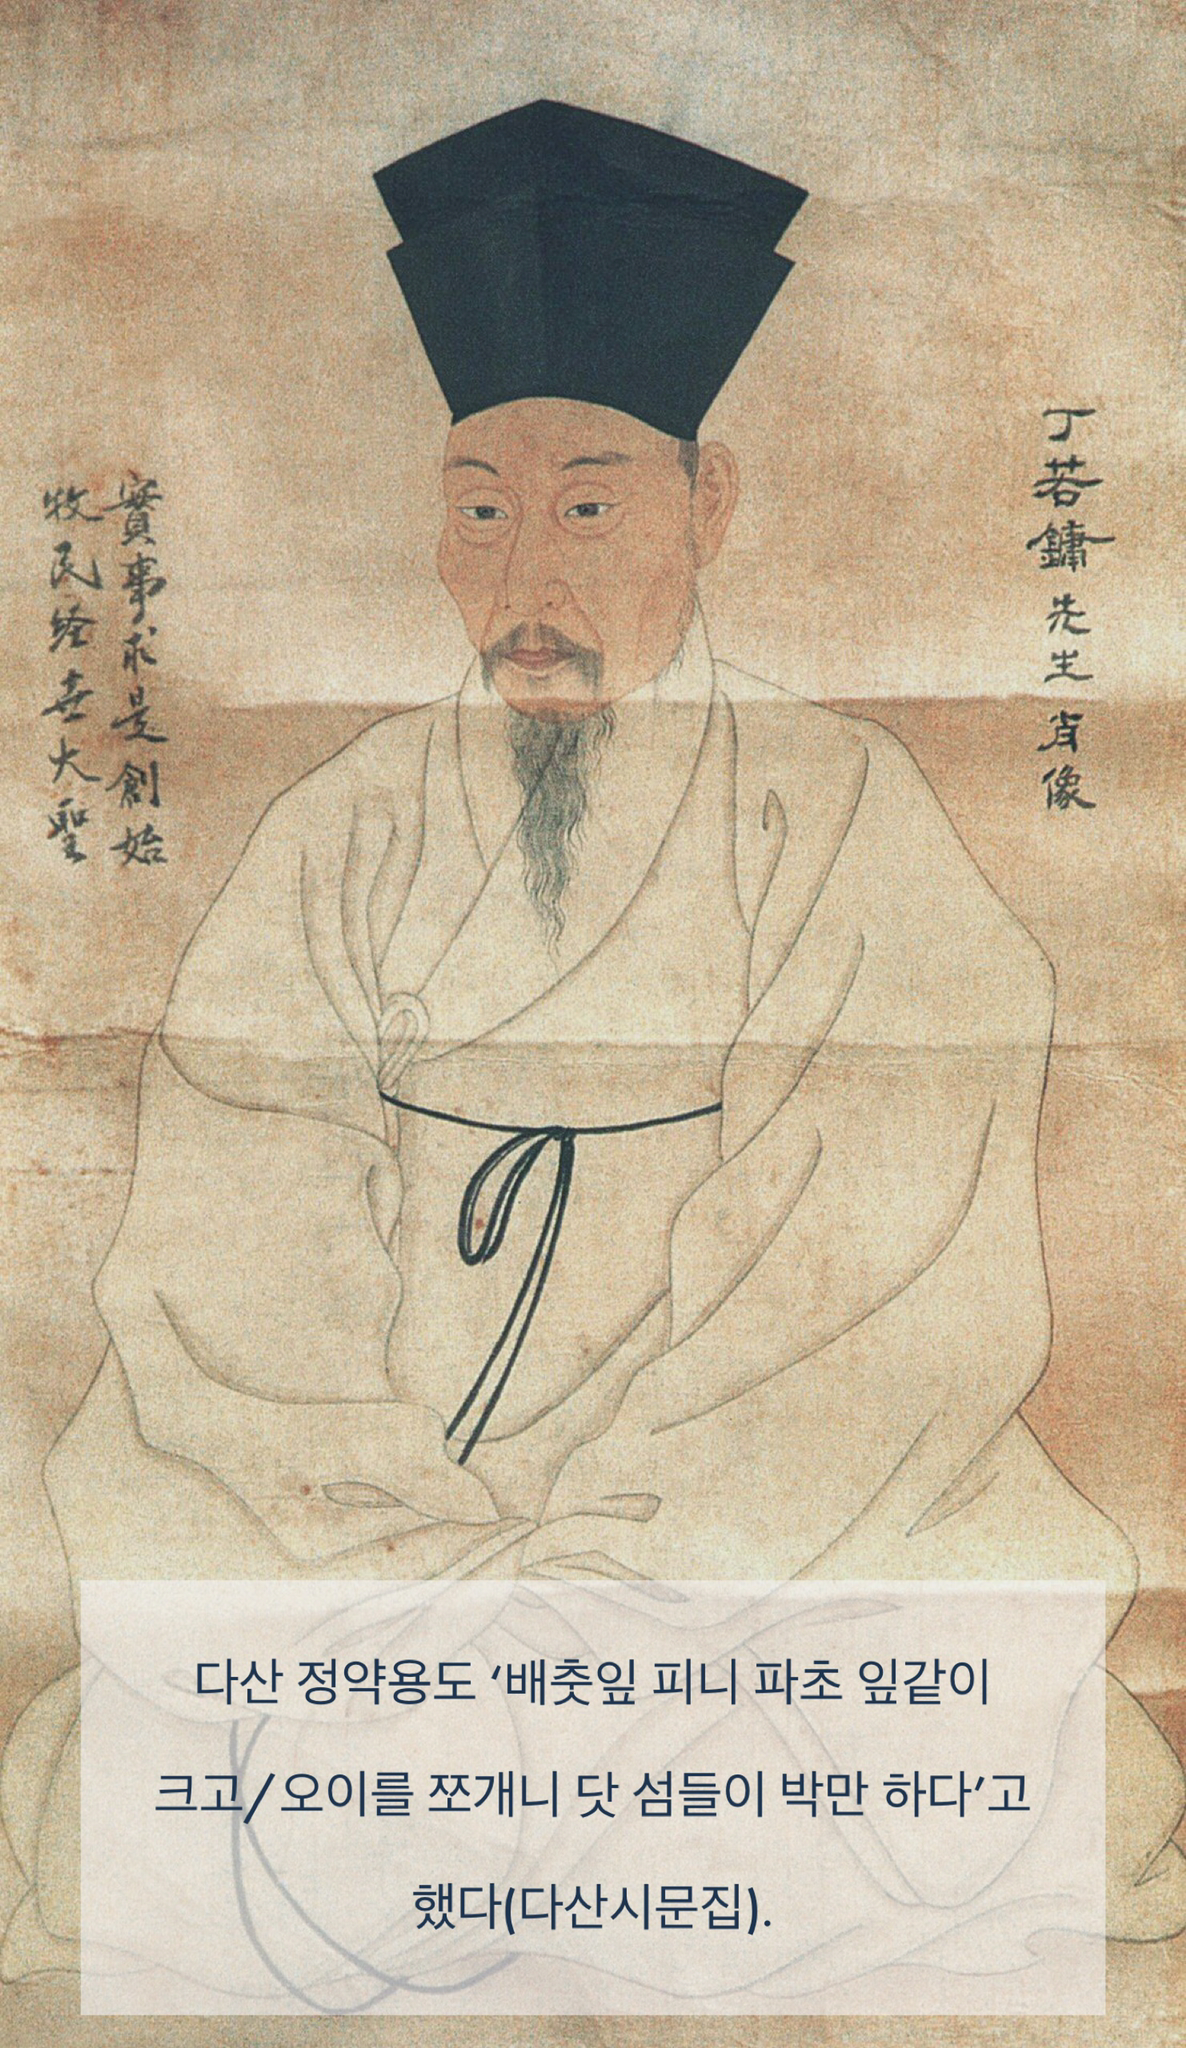 丁若鏞先生肖像
實事求是創始
牧民経世大聖
다산 정약용도 ‘배춧잎 피니 파초 잎같이
크고/오이를 쪼개니 닷 섬들이 박만 하다’고
했다(다산시문집).